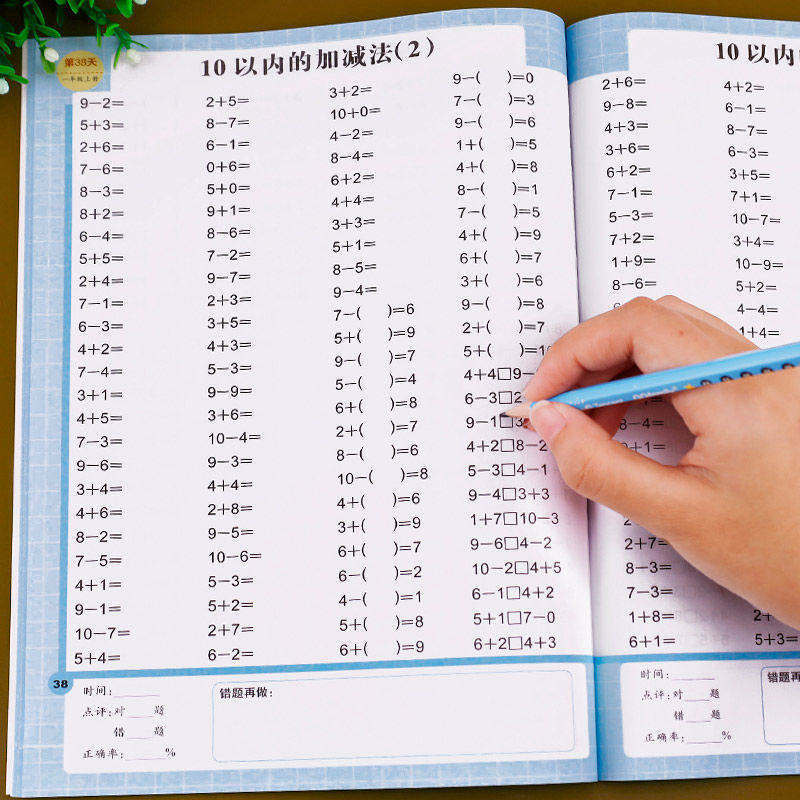 第38天
一年级上册
10以内的加减法(2)
9-2=
5+3=
2+6=
7-6=
8-3=
8+2=
6-4=
5+5=
2+4=
7-1=
6-3=
4+2=
7-4=
3+1=
4+5=
7-3=
9-6=
3+4=
4+6=
8-2=
7-5=
4+1=
9-1=
10-7=
5+4=
2+5=
8-7=
6-1=
0+6=
5+0=
9+1=
8-6=
7-2=
9-7=
2+3=
3+5=
4+3=
5-3=
9-9=
3+6=
10-4=
9-3=
4+4=
2+8=
9-5=
10-6=
5-3=
5+2=
2+7=
6-2=
3+2=
10+0=
4-2=
8-4=
6+2=
4+4=
3+3=
5+1=
8-5=
9-4=
7-( )=6
5+( )=9
9-( )=7
5-( )=4
6+( )=8
2+( )=7
8-( )=6
10-( )=8
4+( )=6
3+( )=9
6+( )=7
6-( )=2
4-( )=1
5+( )=8
6+( )=9
9-( )=0
7-( )=3
9-( )=6
1+( )=5
4+( )=8
8-( )=1
7-( )=5
4+( )=9
6+( )=7
3+( )=6
9-( )=8
2+( )=7
5+( )=10
4+4□9-
6-3□2
9-1□3
4+2□8-2
5-3□4-1
9-4□3+3
1+7□10-3
9-6□4-2
10-2□4+5
6-1□4+2
5+1□7-0
6+2□4+3
38
时间:
点评:对 题
错 题
正确率: %
错题再做:
10以内
2+6=
9-8=
4+3=
3+6=
6+2=
7-1=
5-3=
7+2=
1+9=
8-6=
8-4=
9+1=
2+7=
8-3=
7-3=
1+8=
6+1=
4+2=
6-1=
8-7=
6-3=
3+5=
7+1=
10-7=
3+4=
10-9=
5+2=
4-4=
1+4=
2+
5+3=
时间:
点评:对 题
错 题
正确率: %
错题再